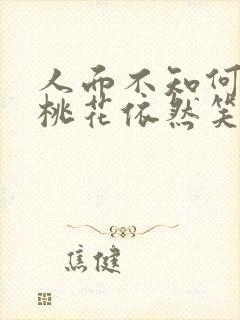 人而不知何
桃花依然笑
焦健